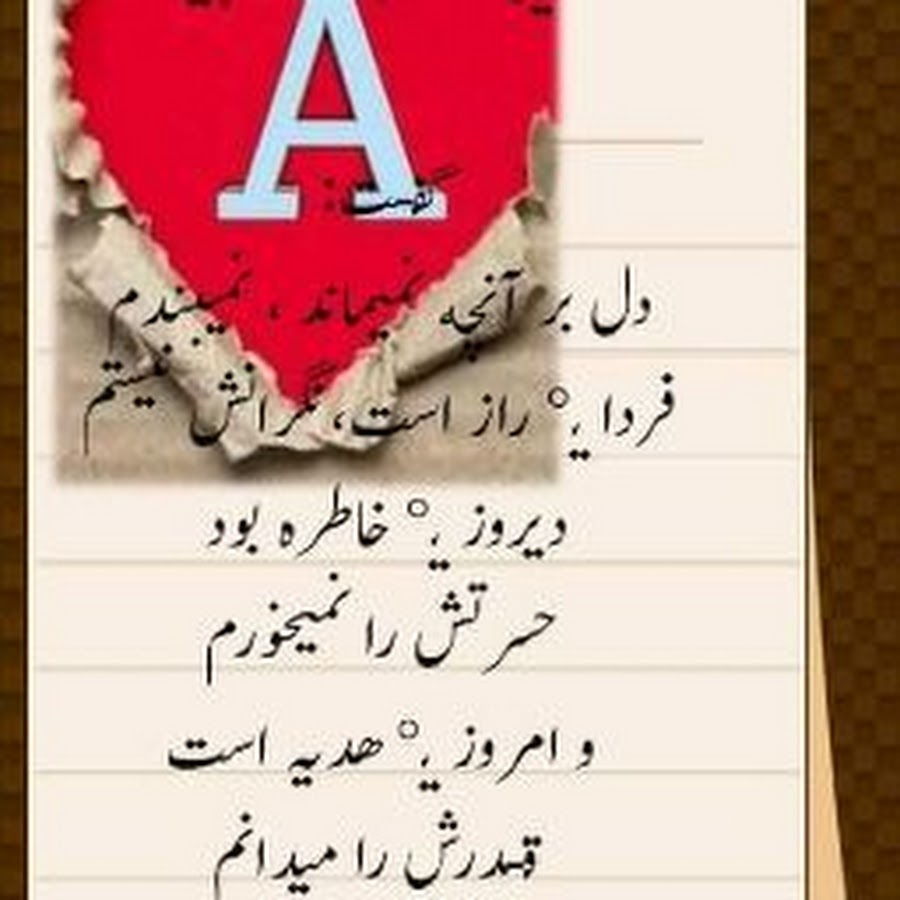 A
گفت:
دل بر آنچه نمیماند ، نمیبندم
فردا یه راز است، نگرانش نیستم
دیروز یه خاطره بود
حسرتش را نمیخورم
و امروز یه هدیه است
قدرش را میدانم